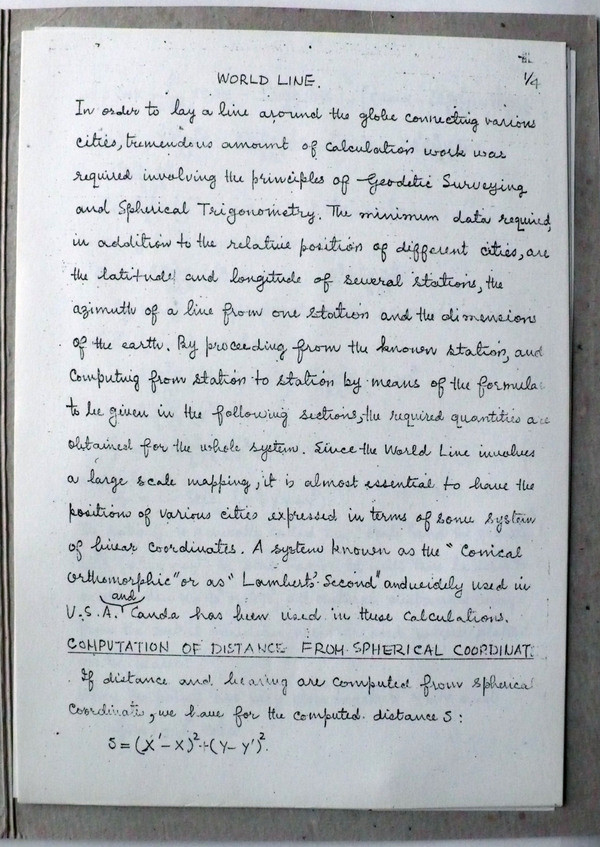 1/4
WORLD LINE.
In order to lay a line around the globe connecting various
cities, tremendous amount of calculation work was
required involving the principles of Geodetic Surveying
and Spherical Trigonometry. The minimum data required,
in addition to the relative position of different cities, are
the latitude and longitude of several stations, the
azimuth of a line from one station and the dimensions
of the earth. By proceeding from the known station, and
Computing from station to station by means of the formula
to be given in the following sections, the required quantities are
obtained for the whole system. Since the World Line involves
a large scale mapping, it is almost essential to have the
positions of various cities expressed in terms of some system
of linear coordinates. A system known as the "Conical
Orthomorphic" or as "Lambert's Second" and widely used in
and
U.S.A. Canda has been used in these calculations.
COMPUTATION OF DISTANCE FROM SPHERICAL COORDINAT.
If distance and bearing are computed from spherical
Coordinate, we have for the computed distance S:
S = (X' - X)² + (Y - Y')².